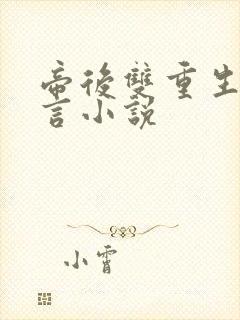 帝後雙重生
言小說
小霄